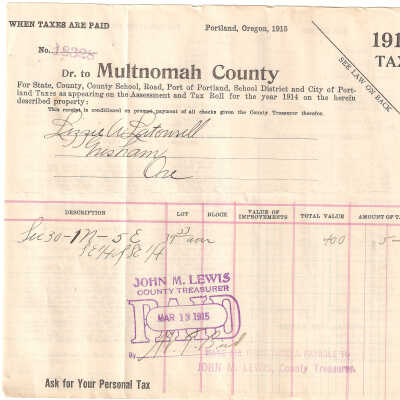 WHEN TAXES ARE PAID
Portland, Oregon, 1915
191
No.
TAX
SEE LAW ON BACK
Dr. to Multnomah County
For State, County, County School, Road, Port of Portland, School District and City of Port-
land Taxes as appearing on the Assessment and Tax Roll for the year 1914 on the herein
described property:
This receipt is conditioned on prompt payment of all checks given the County Treasurer therefor.
Lizzie
Gresham
Ore
DESCRIPTION LOT BLOCK VALUE OF IMPROVEMENTS TOTAL VALUE AMOUNT OF TA
Sec 30-1N-5E 400 5-
SE 1/4 of SE 1/4
JOHN M. LEWIS
COUNTY TREASURER
PAID
MAR 13 1915
By
JOHN M. LEWIS, County Treasurer
Ask for Your Personal Tax